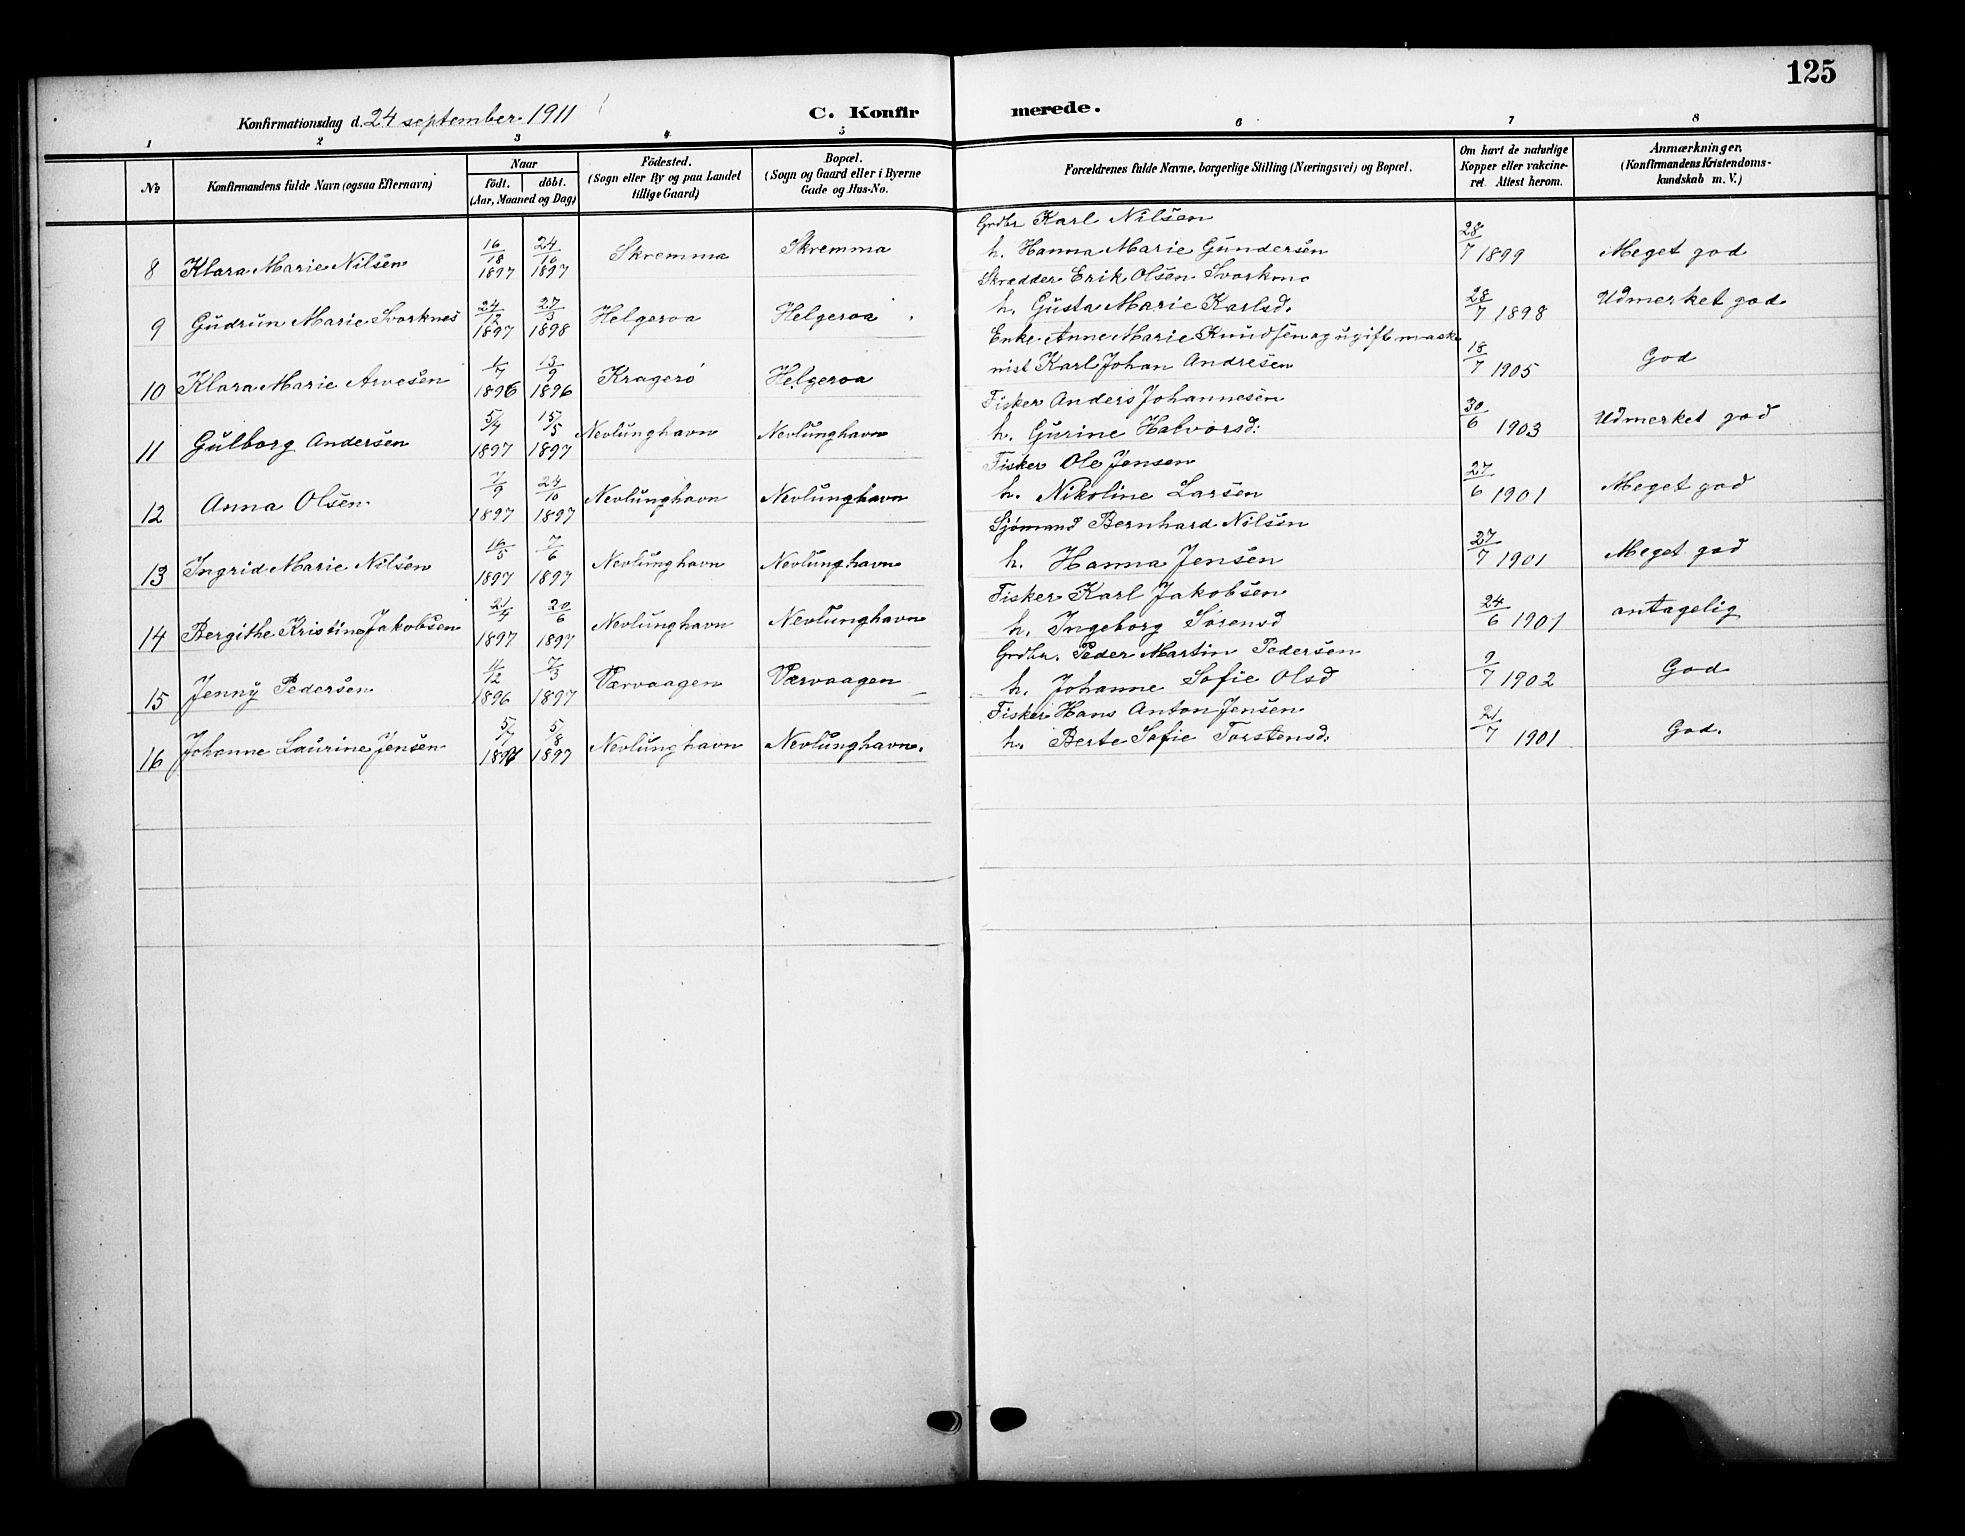 125
Konfirmationsdag d. 24 september 1911
C. Konfirmerede.
1 2 3 4 5 6 7 8
No
Konfirmandens fulde Navn (ogsaa Efternavn)
Naar
födt. döbt.
(Aar, Maaned og Dag)
Födested.
(Sogn eller By og paa Landet
tillige Gaard)
Bopæl.
(Sogn og Gaard eller i Byerne
Gade og Hus-No.
Forældrenes fulde Navne, borgerlige Stilling (Næringsvei) og Bopæl.
Om havt de naturlige
Kopper eller vakcine-
ret. Attest herom.
Anmærkninger.
(Konfirmandens Kristendoms-
kundskab m. V.)
8 Klara Marie Nilsen 16/18 1897 24/10 1897 Skremma Skremma Grdbr Karl Nilsen
h. Hanna Marie Gundersen 28/7 1899 Meget god
9 Gudrun Marie Svorknes 24/12 1897 27/3 1898 Helgeroa Helgeroa Skrædder Erik Olsen
h. Gusta Marie Karlsd. 28/7 1898 Udmerket god
10 Klara Marie Arvesen 1/7 1896 13/9 1896 Kragerö Helgeroa Enke Anne Marie Knudsen og ugift maski
nist Karl Johan Andresen 18/7 1905 God
11 Gulborg Andersen 5/4 1897 15/5 1897 Nevlunghavn Nevlunghavn Fisker Anders Johannesen
h. Gurine Halvorsd: 30/6 1903 Udmerket god
12 Anna Olsen 7/9 1897 24/10 1897 Nevlunghavn Nevlunghavn Fisker Ole Jensen
h. Nikoline Larsen 27/6 1901 Meget god
13 Ingrid Marie Nilsen 16/5 1897 7/6 1897 Nevlunghavn Nevlunghavn Sjömand Bernhard Nilsen
h. Hanna Jensen 27/7 1901 Meget god
14 Bergithe Kristine Jakobsen 21/4 1897 20/6 1897 Nevlunghavn Nevlunghavn Fisker Karl Jakobsen
h. Ingeborg Sörensd 24/6 1901 antagelig
15 Jenny Pedersen 11/12 1896 7/3 1897 Værvaagen Værvaagen Grdbr. Peder Martin Pedersen
h. Johanne Sofie Olsd 9/7 1902 God
16 Johanne Laurine Jensen 5/7 1897 5/8 1897 Nevlunghavn Nevlunghavn. Fisker Hans Anton Jensen
h. Berte Sofie Torstensd. 21/7 1901 God.